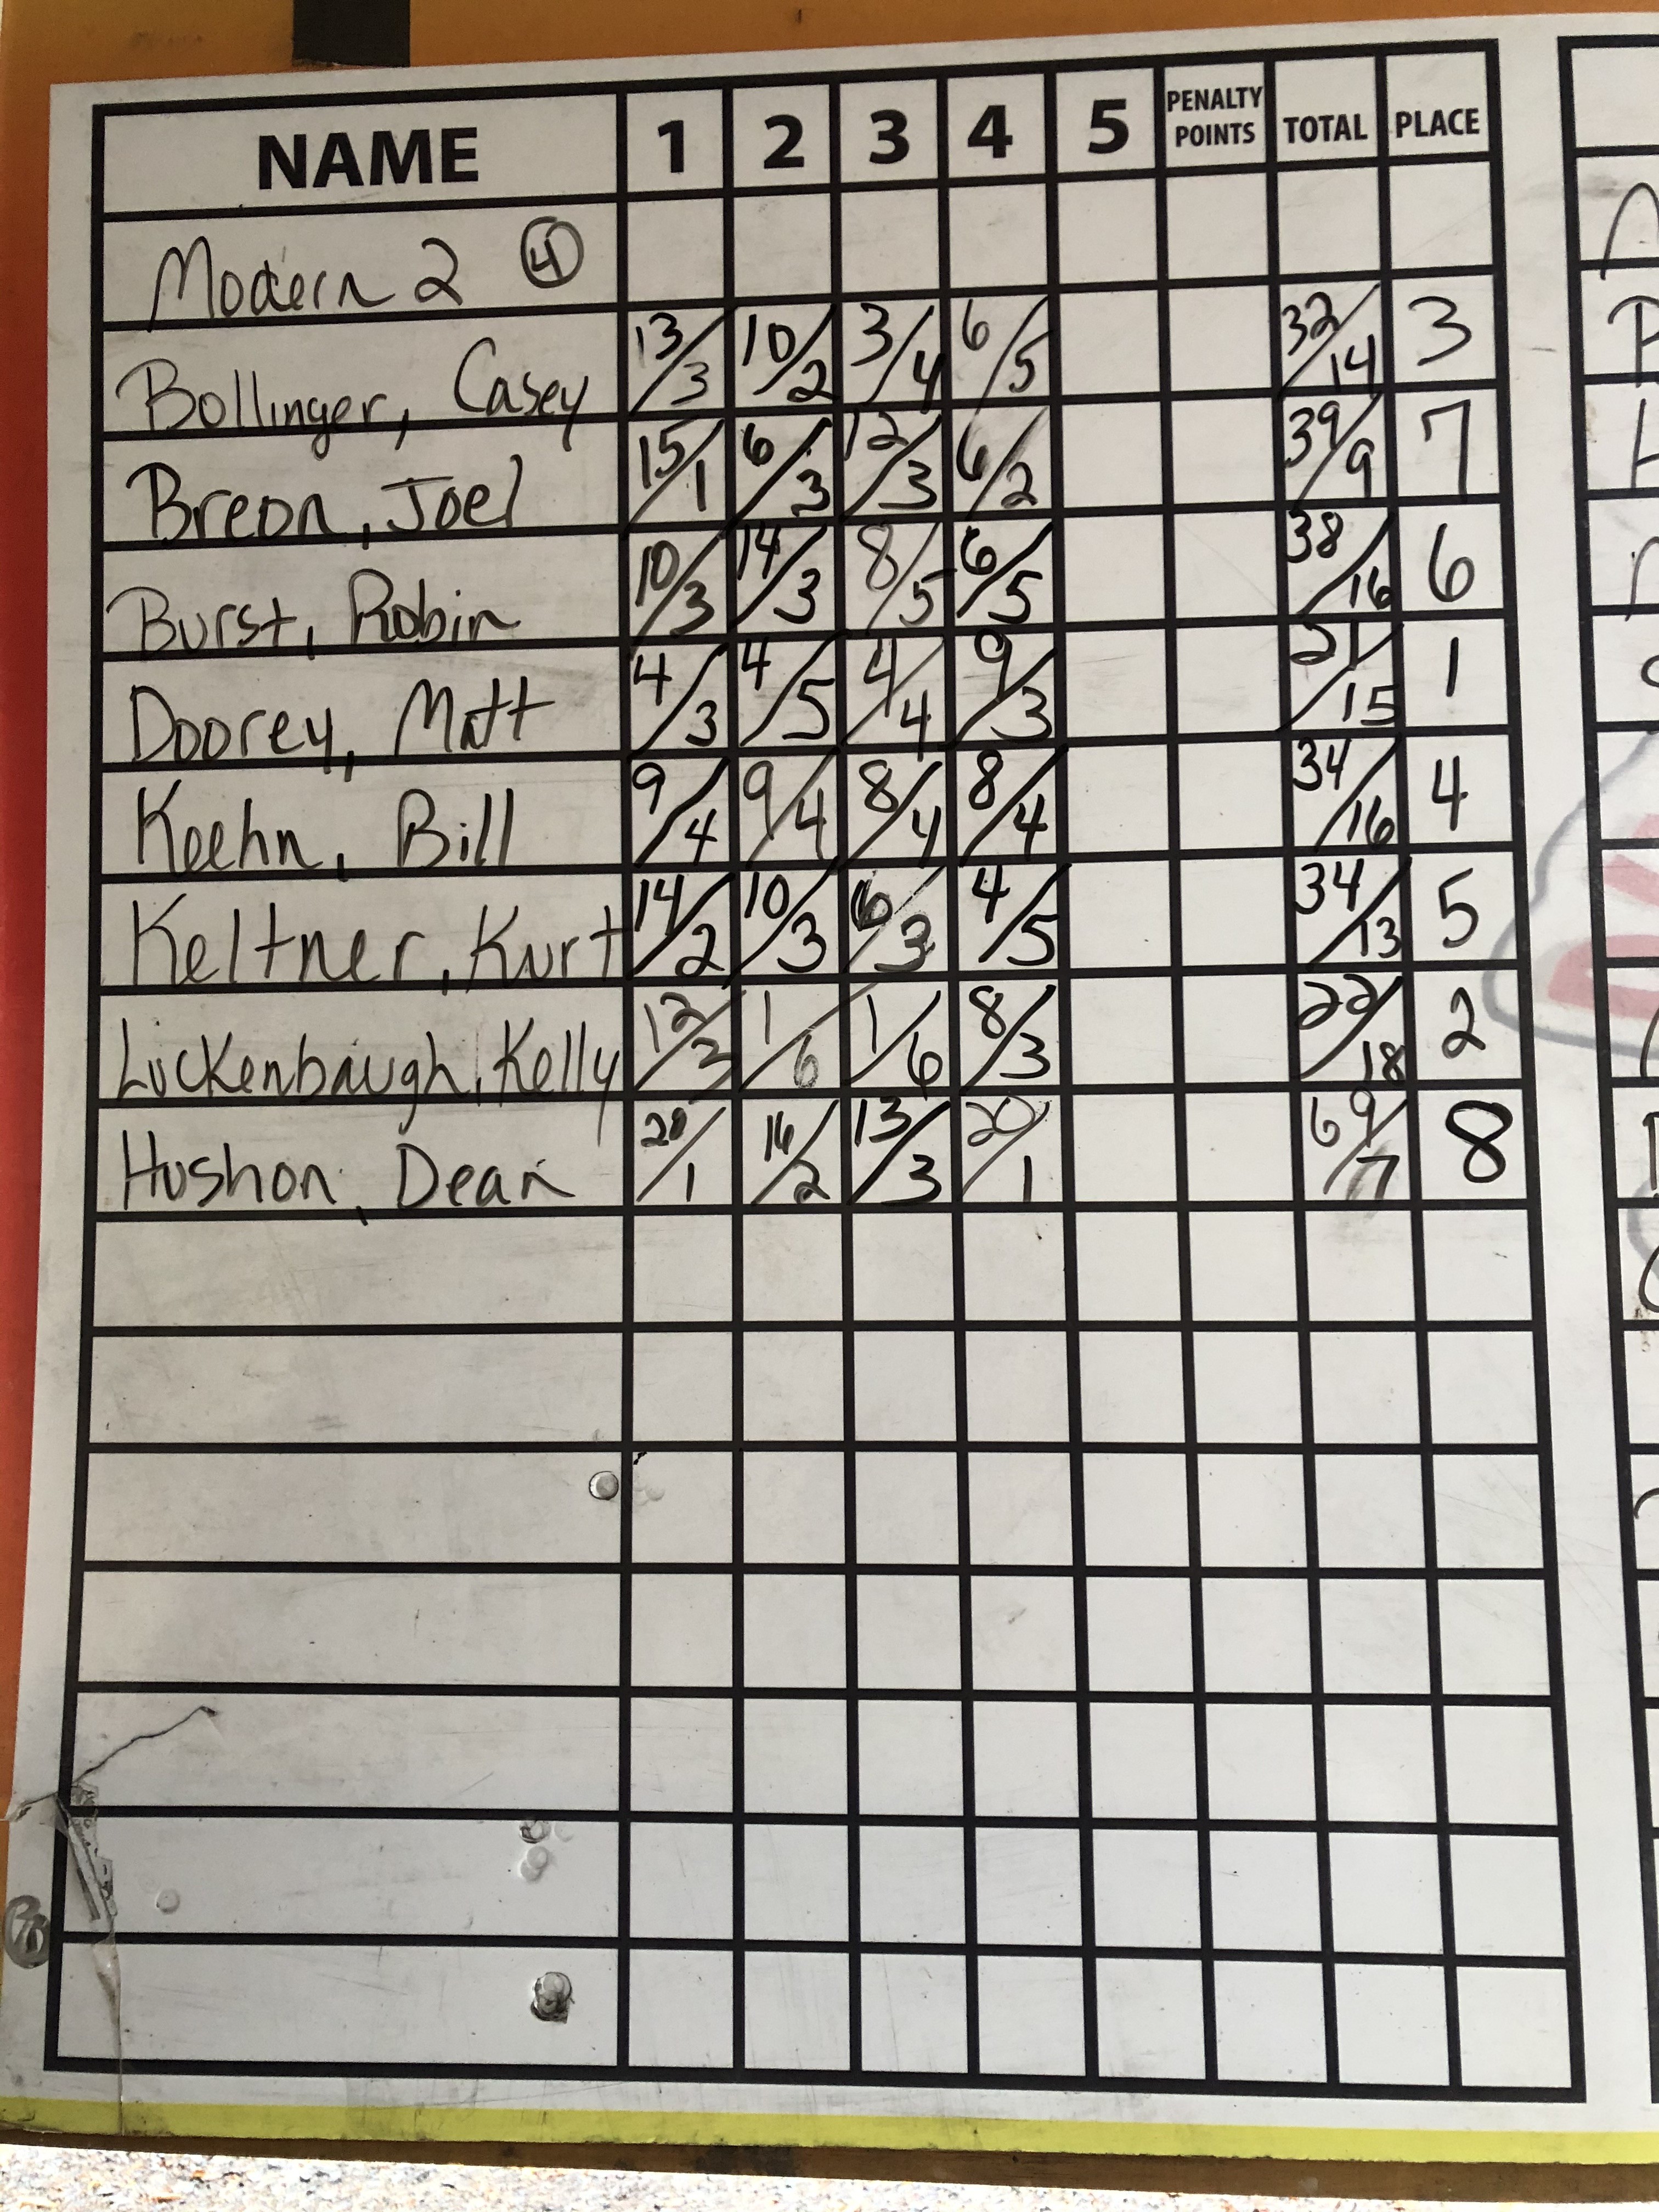 NAME 1 2 3 4 5 PENALTY POINTS TOTAL PLACE
Modern 2 4
Bollinger, Casey 13/3 10/2 3/4 6/5 32/14 3
Breon, Joel 15/1 6/3 12/3 6/2 39/9 7
Burst, Robin 10/3 14/3 8/5 6/5 38/16 6
Doorey, Matt 4/3 4/5 4/4 9/3 21/15 1
Keehn, Bill 9/4 9/4 8/4 8/4 34/16 4
Keltner, Kurt 14/2 10/3 6/3 4/5 34/13 5
Luckenbaugh, Kelly 12/3 1/6 1/6 8/3 22/18 2
Hushon, Dean 20/1 16/2 13/3 20/1 69/7 8